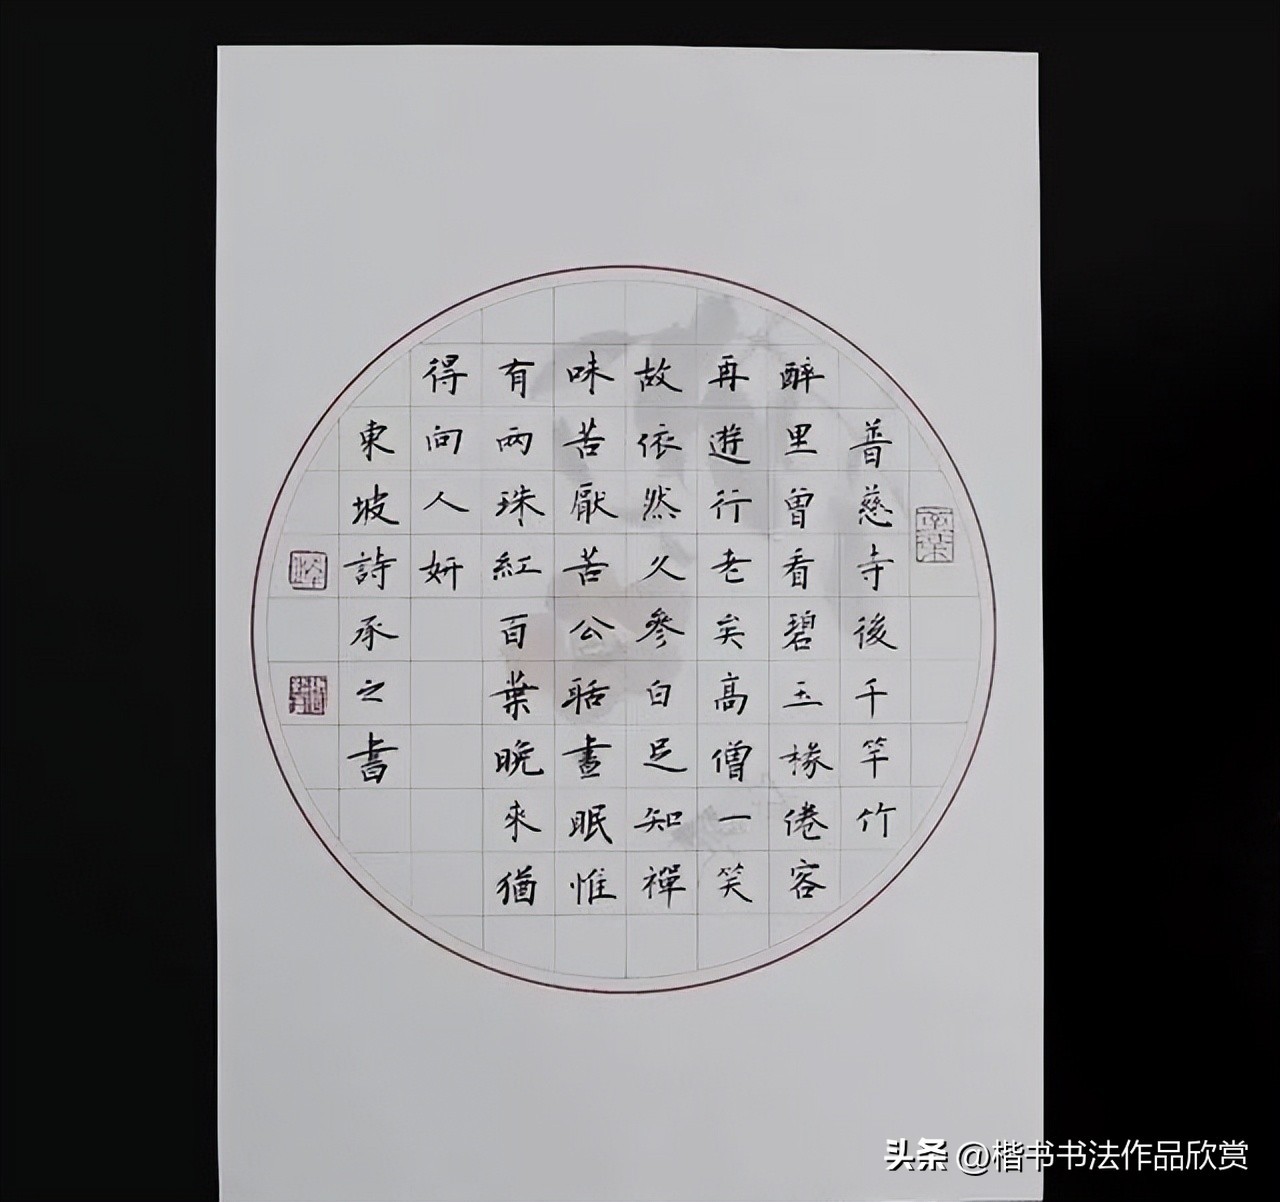 普慈寺後千竿竹
醉里曽看碧玉椽倦客
再遊行老矣高僧一笑
故依然久參白足知禪
味苦厭苦公聒晝眠惟
有兩珠紅百葉晚來猶
得向人妍
東坡詩承之書
头条 @楷书书法作品欣赏